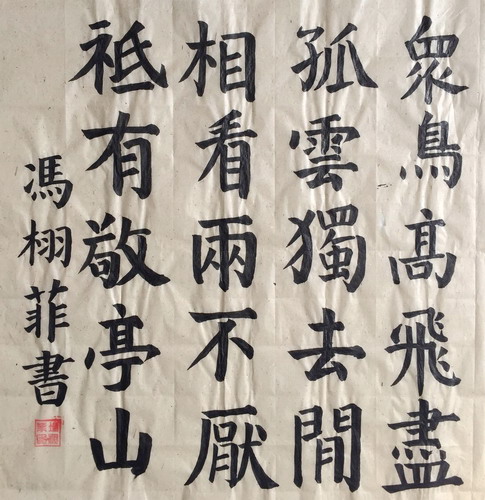 眾鳥髙飛盡
孤雲獨去閒
相看兩不厭
祗有敬亭山
馮栩菲書